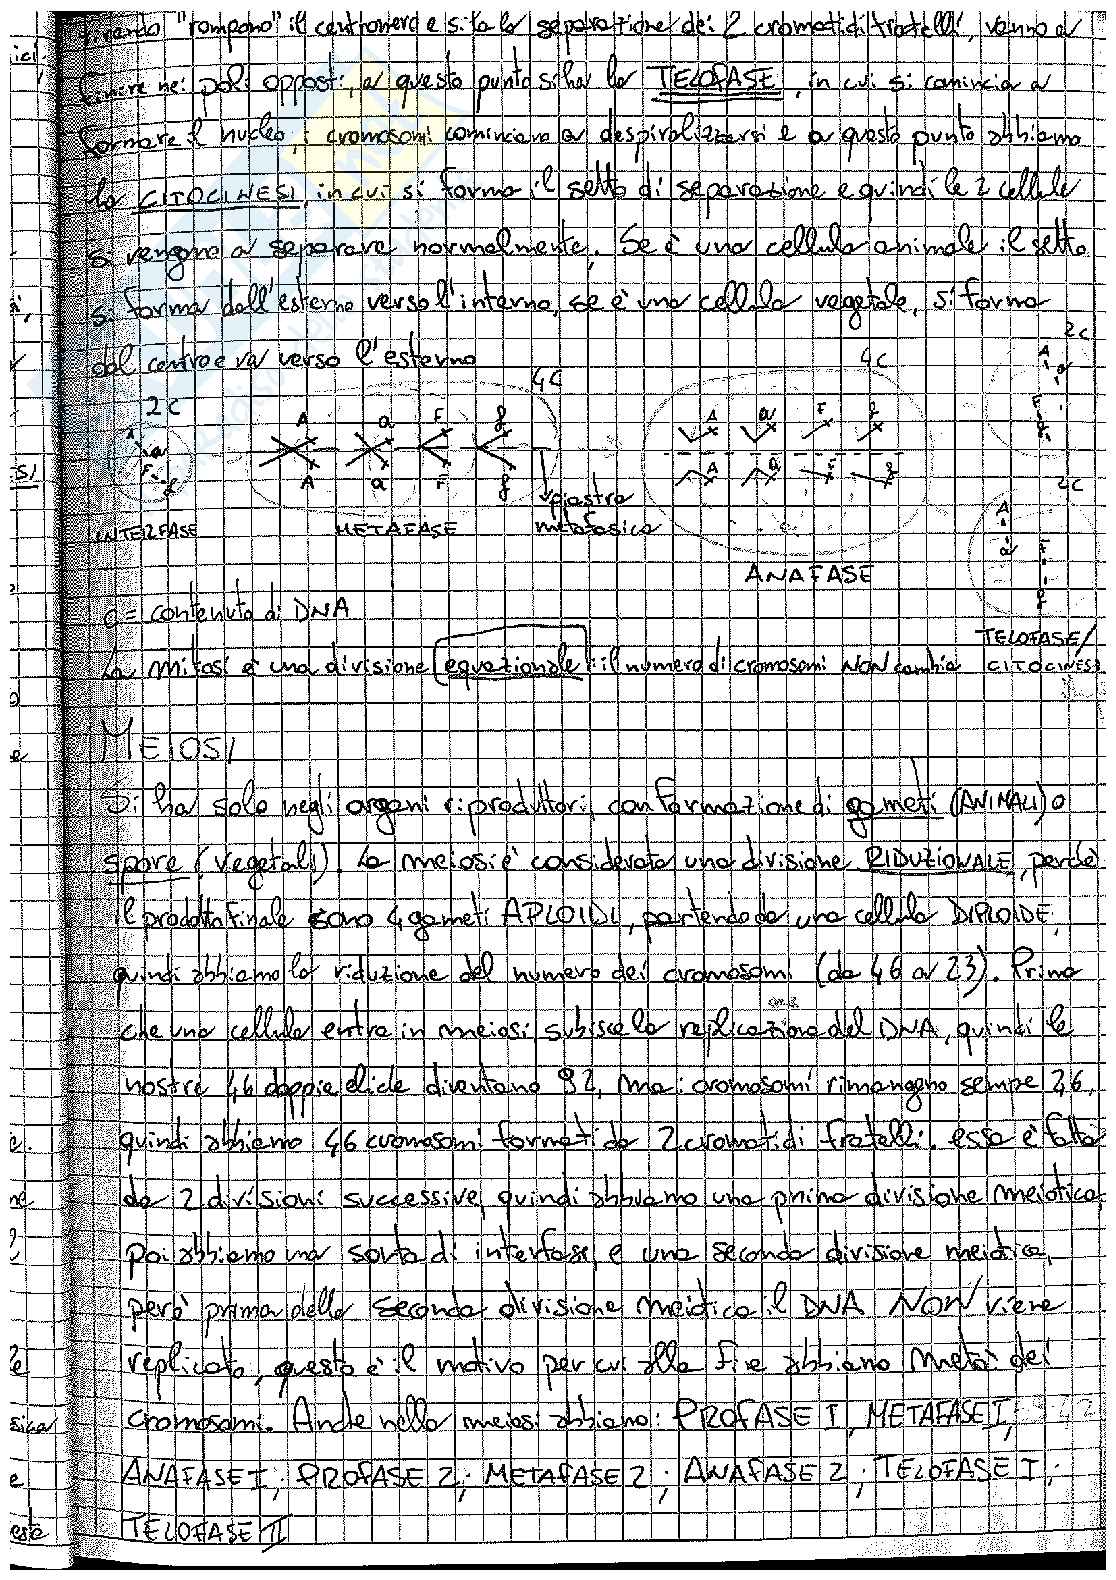 "rompono" il centromero e si ha la separazione dei 2 cromatidi fratelli, vanno a
finire nei poli opposti, a questo punto si ha la TELOFASE, in cui si comincia a
formare il nucleo, i cromosomi cominciano a despiralizzarsi e a questo punto abbiamo
la CITOCINESI, in cui si forma il setto di separazione e quindi le 2 cellule
si vengono a separare normalmente. Se è una cellula animale il setto
si forma dall'esterno verso l'interno, se è una cellula vegetale, si forma
dal centro e va verso l'esterno
2C
4C
4C
2C
2C
A a F f
A a F f
A a F f
A a F f
piastra
metafasica
INTERFASE
METAFASE
ANAFASE
TELOFASE/
CITOCINESI
C = contenuto di DNA
La mitosi è una divisione equazionale: il numero di cromosomi NON cambia
MEIOSI
Si ha solo negli organi riproduttori, con formazione di gameti (ANIMALI) o
spore (vegetali). La meiosi è considerata una divisione RIDUZIONALE, perché
il prodotto finale sono 4 gameti APLOIDI, partendo da una cellula DIPLOIDE,
quindi abbiamo la riduzione del numero dei cromosomi (da 46 a 23). Prima
che una cellula entra in meiosi subisce la replicazione del DNA, quindi le
nostre 46 doppie eliche diventano 92, ma i cromosomi rimangono sempe 46,
quindi abbiamo 46 cromosomi formati da 2 cromatidi fratelli. essa è fatta
da 2 divisioni successive, quindi abbiamo una prima divisione meiotica,
poi abbiamo una sorta di interfase, e una seconda divisione meiotica,
però prima della seconda divisione meiotica il DNA NON viene
replicato, questo è il motivo per cui alla fine abbiamo metà dei
cromosomi. Anche nella meiosi abbiamo: PROFASE I, METAFASE I;
ANAFASE I; PROFASE 2; METAFASE 2; ANAFASE 2; TELOFASE I;
TELOFASE II